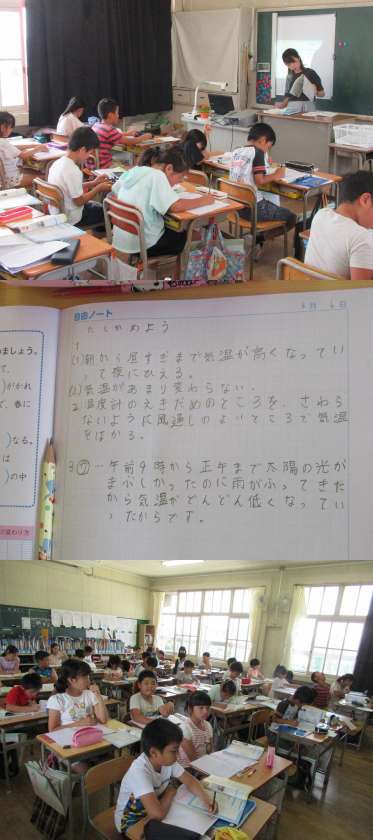 自由ノート
月 6日
たしかめよう
1
(1)朝から昼すぎまで気温が高くなってい
って夜にひえる。
(2)気温があまり変わらない。
2 温度計のえきだめのところを、さわら
ないように風通しのよいところで気温
をはかる。
3 ㋐…午前9時から正午まで太陽の光が
まぶしかったのに雨がふってきた
から気温がどんどん低くなってい
ったからです。
ましょう。
て、
)がかれ
で、春に
)なる。
は
)の中
の変わり方